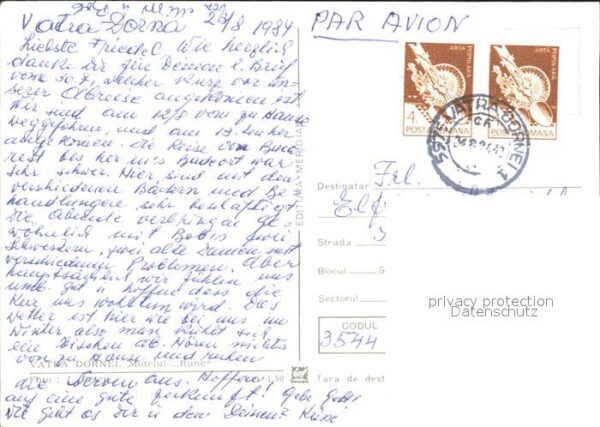 Vatra Dornei 20/8 1984
Liebste Friedel! Wie herzlich
danke Dir für Deinen l. Brief
vom 30.7, welcher kurz vor un-
serer Abreise angekommen ist
Wir sind am 12/8 von zu Hause
weggefahren, und am 13. ten hier
angekommen. Die Reise von Buca-
rest bis her ins Badeort war
sehr schwer. Hier sind mit den
verschiedenen Bädern und Be-
handlungen sehr beschäftigt
Die Abende verbringen ge-
wöhnlich mit zwei
Schwestern, zwei alte Damen mit
verschiedenen Problemen. Aber
hauptsächlich wir fühlen uns
gut u hoffen dass die
Kur uns wohltun wird. Das
Wetter ist hier wie bei uns im
Winter also man kühlt sich
ein bischen ab. Hören nichts
von zu Hause und ruhen
die Nerven aus. Hoffen
auf eine gute Gebe Gott!
Wie geht es Dir u dem Deinen? Küsse
VATRA DORNEI. Motelul „Runc”
1,50
EDITURA MERIDIANE
PAR AVION
POSTA ROMANA
4
ARTA
POPULARA
POSTA ROMANA
ARTA
POPULARA
5975 VATRA DORNEI 1
Destinatar Frl.
Strada
Blocul
Sectorul
CODUL
3544
Tara de dest
privacy protection
Datenschutz